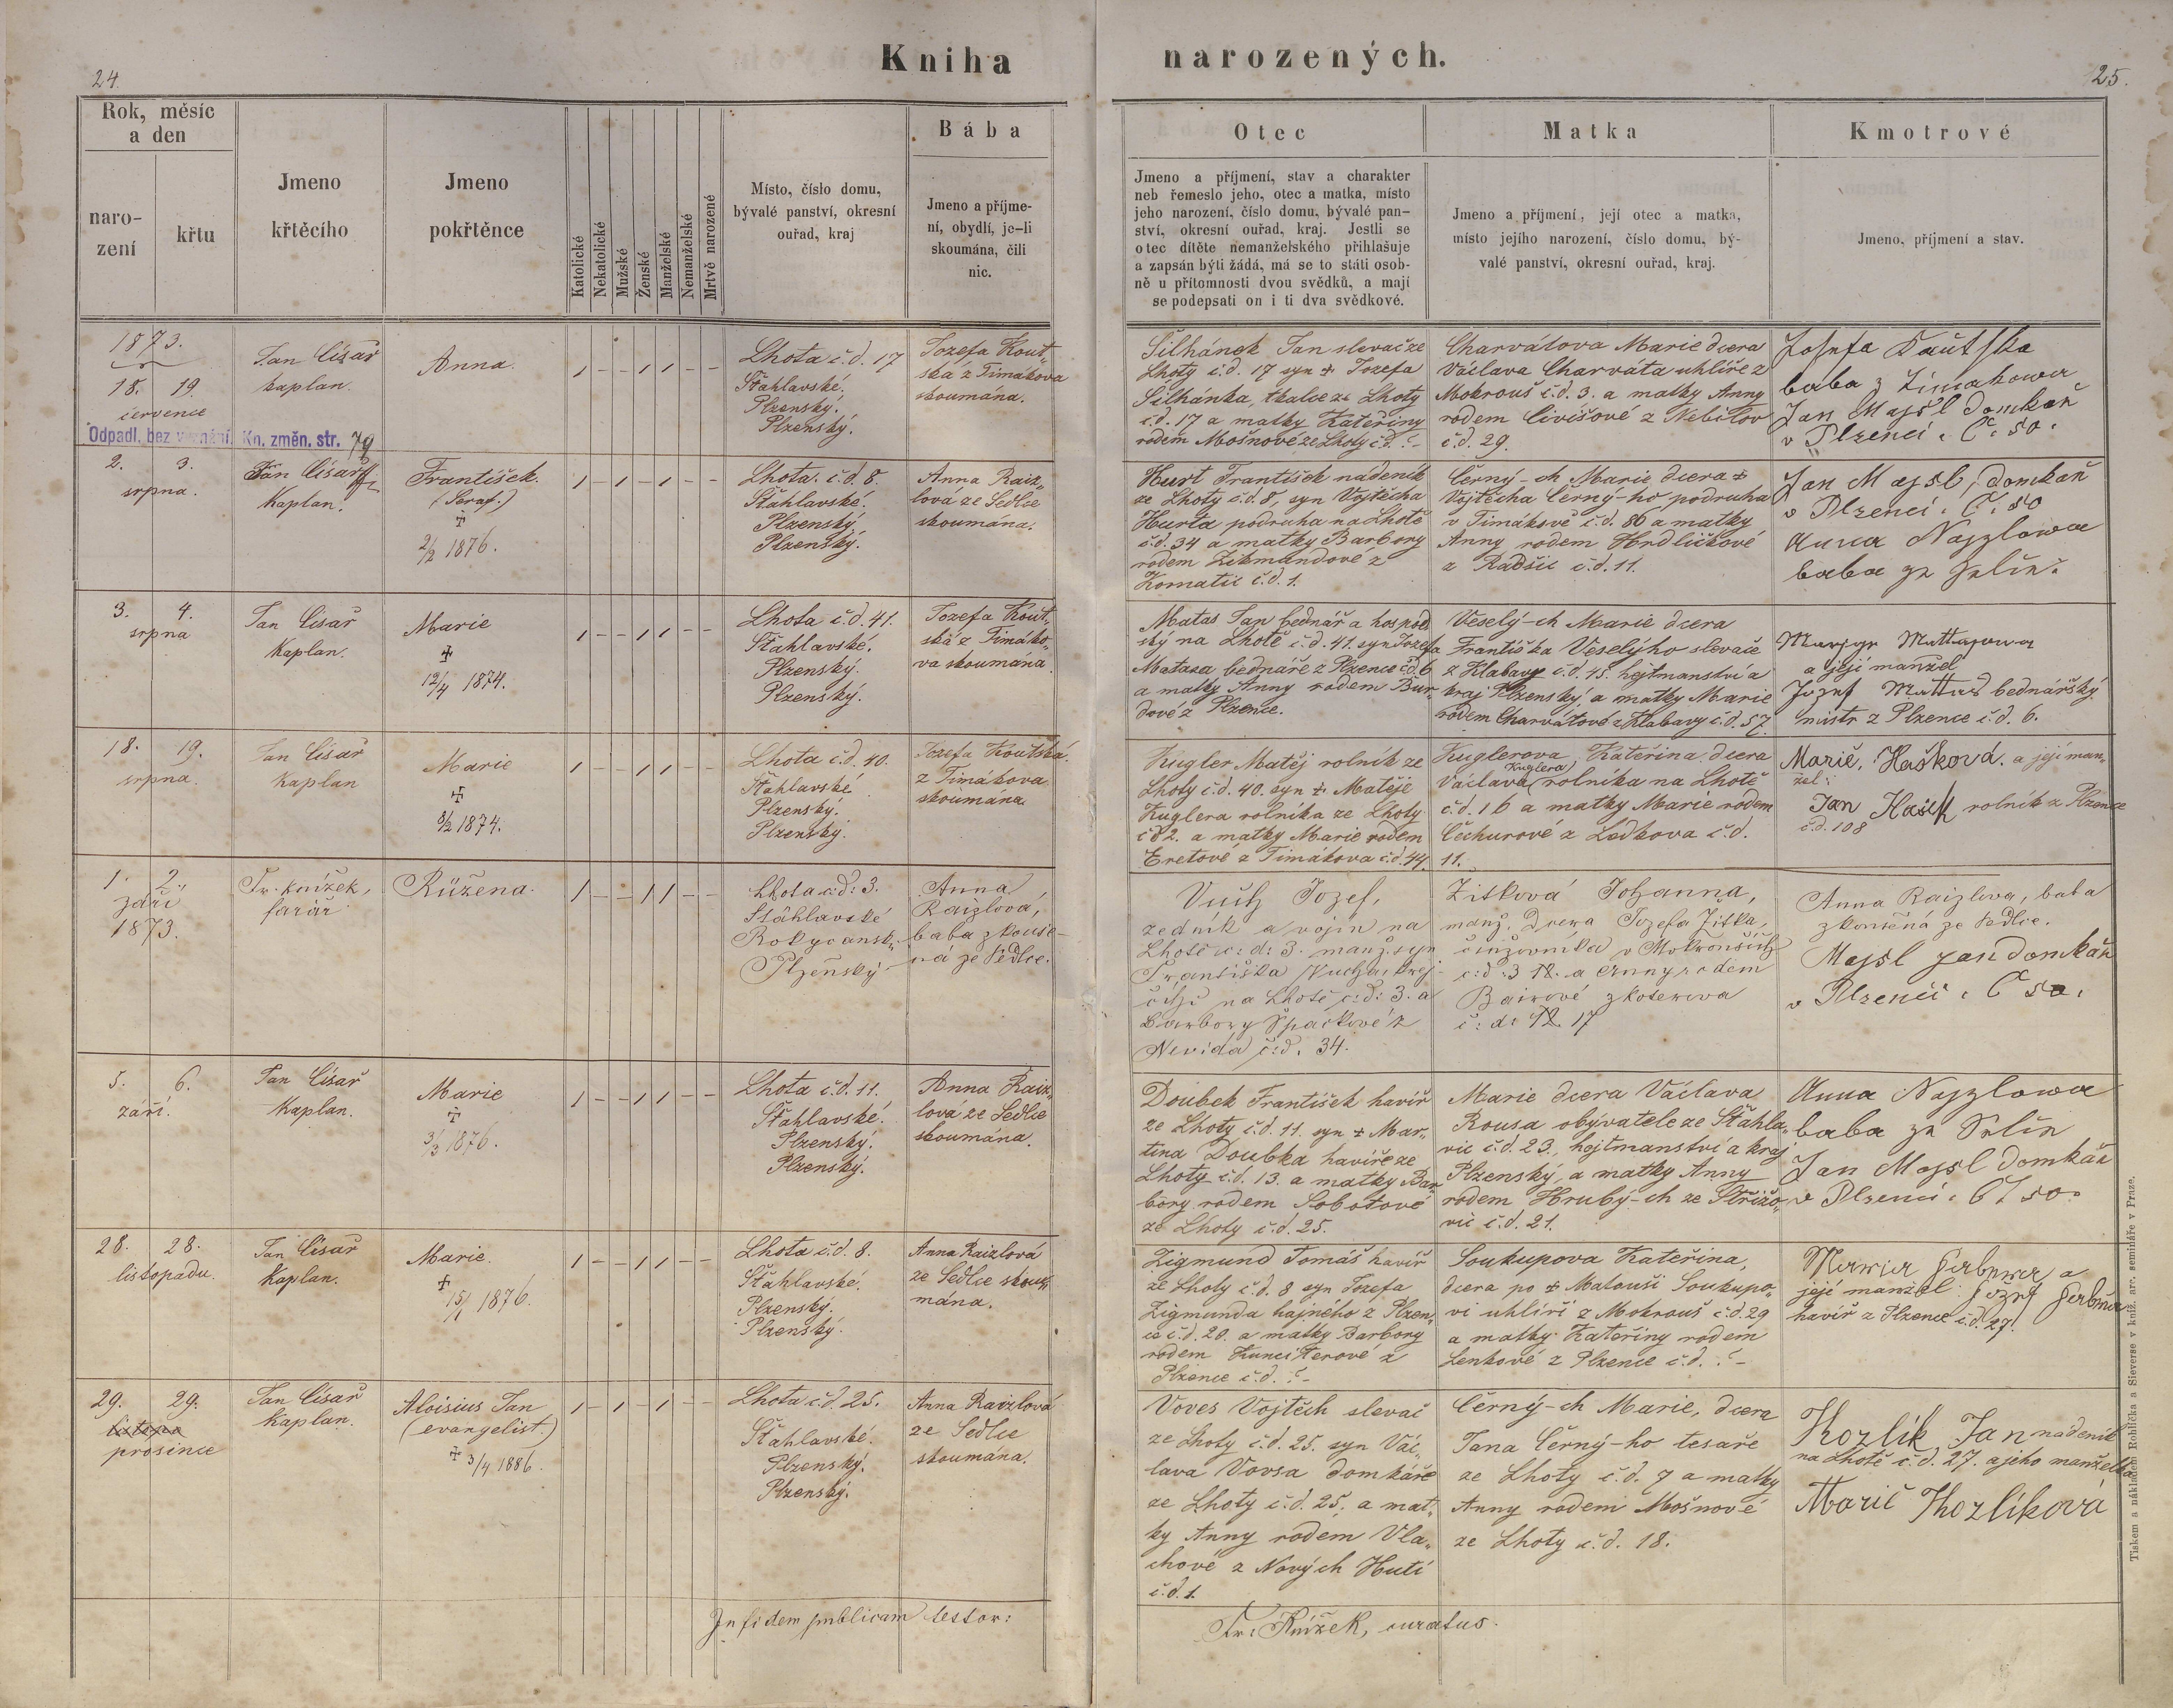 24.
Kniha narozených.
25.
Rok, měsíc
a den
naro-
zení
křtu
Jmeno
křtěcího
Jmeno
pokřtěnce
Katolické
Nekatolické
Mužské
Ženské
Manželské
Nemanželské
Mrtvě narozené
Místo, číslo domu,
bývalé panství, okresní
ouřad, kraj
Bába
Jmeno a příjme-
ní, obydlí, je-li
skoumána, čili
nic.
Otec
Jmeno a příjmení, stav a charakter
neb řemeslo jeho, otec a matka, místo
jeho narození, číslo domu, bývalé pan-
ství, okresní ouřad, kraj. Jestli se
otec dítěte nemanželského přihlašuje
a zapsán býti žádá, má se to státi osob-
ně u přítomnosti dvou svědků, a mají
se podepsati on i ti dva svědkové.
Matka
Jmeno a příjmení, její otec a matka,
místo jejího narození, číslo domu, bý-
valé panství, okresní ouřad, kraj.
Kmotrové
Jmeno, příjmení a stav.
1873.
18. 19.
července
Odpadl. bez vyznání. Kn. změn. str. 79
Jan Císař
kaplan.
Anna.
Lhota č.d. 17
Šťahlavské.
Plzenský.
Plzenský.
Jozefa Kout„
ská z Timákova
skoumána.
Šilhánek Jan slevač ze
Lhoty č.d. 17 syn ‡ Jozefa
Šilhánka, tkalce ze Lhoty
č.d. 17 a matky Kateřiny
rodem Mošnové ze Lhoty č.d. ?-
Charvátova Marie dcera
Václava Charváta uhlíře z
Mokrouš č.d. 3. a matky Anny
rodem Civišové z Nebílov
č.d. 29.
Josefa Kautska
baba z Timakowa
Jan Majsl domkař
v Plzenci. Č. 50.
2. 3.
srpna.
Jan Císař
Kaplan.
František.
(Seraf.)
‡
2/2 1876.
Lhota. č.d. 8.
Šťahlavské.
Plzenský.
Plzenský.
Anna Raiz„
lová ze Sedlce
skoumána.
Hurt František nádeník
ze Lhoty č.d. 8, syn Vojtěcha
Hurta podruha na Lhotě
č.d. 34 a matky Barbory
rodem Zikmundové z
Komatic č.d. 1.
Černý-ch Marie dcera ‡
Vojtěcha Černý-ho podruha
v Timákově č.d. 86 a matky
Anny rodem Hrdličkové
z Radšic č.d. 11.
Jan Majsl, domkař
v Plzenci. Č. 50
Anna Najzlowa
baba ze
3. 4.
srpna
Jan Císař
Kaplan.
Marie
‡
12/4 1874.
Lhota č.d. 41.
Šťahlavské.
Plzenský.
Plzenský.
Jozefa Kout„
ská z Timáko„
va skoumána.
Matas Jan bednář a hospod„
ský na Lhotě č.d. 41. syn Jozefa
Matasa bednáře z Plzence č.d. 6
a matky Anny rodem Bur„
dové z Plzence.
Veselý-ch Marie dcera
Františka Veselýho slevače
z Klabavy č.d. 45. hejtmanství a
kraj Plzenský, a matky Marie
rodem Charvátové z Klabavy č.d. 57.
a její manžel
Jozef Mattas bednářský
mistr z Plzence č.d. 6.
18. 19.
srpna.
Jan Císař
Kaplan
Marie
‡
8/2 1874.
Lhota č.d. 40.
Šťahlavské
Plzenský.
Plzenský.
Jozefa Koutská.
z Timákova
skoumána.
Kugler Matěj rolník ze
Lhoty č.d. 40. syn ‡. Matěje
Kuglera rolníka ze Lhoty
č.d. 2. a matky Marie rodem
Eretové z Timákova č.d. 44.
Kuglerova Kateřina dcera
Václava Kuglera, rolníka na Lhotě
č.d. 16 a matky Marie rodem
Čechurové z Ledkova č.d.
11.
Marie. Hašková. a její man„
žel:
Jan Hašek rolník z Plzence
č.d. 108
1. 2.
září
1873.
Fr. Knížek,
farář
Růžena.
Lhota č: d: 3.
Šťáhlavské
Rokycansk:
Plzeňský
Anna
Raizlová,
baba zkouše-
ná ze Sedlce.
Vuch Jozef,
zedník a vojín na
Lhotě č: d: 3. manž. syn
Františka Vucha, krej-
čího na Lhotě č: d: 3. a
Barbory Špačkové z
Nevida č: d. 34.
Žitková Johanna,
manž. Dcera Jozefa Žitka,
činžovníka v Mokrouších
č: d: 3 a Anny rodem
Bairové z Koterova
č: d: 17
Anna Raizlova, baba
zkoušená ze Sedlce.
Majsl jan domkař
v Plzenci. Č 50.
5. 6.
září.
Jan Císař
Kaplan.
Marie
‡
3/3 1876.
Lhota č.d. 11.
Šťahlavské.
Plzenský.
Plzenský.
Anna Raiz„
lova ze Sedlce
skoumána.
Doubek František havíř
ze Lhoty č.d. 11. syn ‡ Mar„
tina Doubka havíře ze
Lhoty č.d. 13. a matky Bar„
bory rodem Sobotové
ze Lhoty č.d. 25.
Marie dcera Václava
Rousa obývatele ze Šťahla„
vic č.d. 23., hejtmanství a kraj
Plzenský, a matky Anny
rodem Hrubý-ch ze Střížo„
vic č.d. 21.
Anna Najzlowa
baba ze
Jan Majsl domkář
v Plzenci. Č 50.
28. 28.
listopadu.
Jan Císař
Kaplan.
Marie.
‡
15/1 1876.
Lhota č.d. 8.
Šťahlavské.
Plzenský.
Plzenský.
Anna Raizlová
ze Sedlce skou„
mána.
Zigmund Tomáš havíř
ze Lhoty č.d. 8 syn Jozefa
Zigmunda hajného z Plzen„
ce č.d. 20. a matky Barbory
rodem Kuncíterové z
Plzence č.d. ?-
Soukupova Kateřina,
dcera po ‡ Matouši Soukupo„
vi uhlíři z Mokrouš č.d. 29
a matky Kateřiny rodem
Lenkové z Plzence č.d. ?-
a
její manžel Jozef
havíř z Plzence č.d. 27.
29. 29.
prosince
Jan Císař
Kaplan.
Aloisius Jan
(evangelist.)
‡ 3/4 1886.
Lhota č.d. 25.
Šťahlavské.
Plzenský.
Plzenský.
Anna Raizlová
ze Sedlce
skoumána.
Voves Vojtěch slevač
ze Lhoty č.d. 25. syn Vác„
lava Vovsa domkáře
ze Lhoty č.d. 25, a mat„
ky Anny rodem Vla„
chové z Nových Hutí
č.d. 1.
Černý-ch Marie, dcera
Jana Černý-ho tesaře
ze Lhoty č.d. 7 a matky
Anny rodem Mošnové
ze Lhoty č.d. 18.
Kozlík Jan nádeník
na Lhotě č.d. 27. a jeho manželka
Marie Kozlíková
In fidem publicam testor:
Fr: Knížek, curatus.
Tiskem a nákladem Rohlíčka a Sieverse v kniž. arc. semináře v Praze.